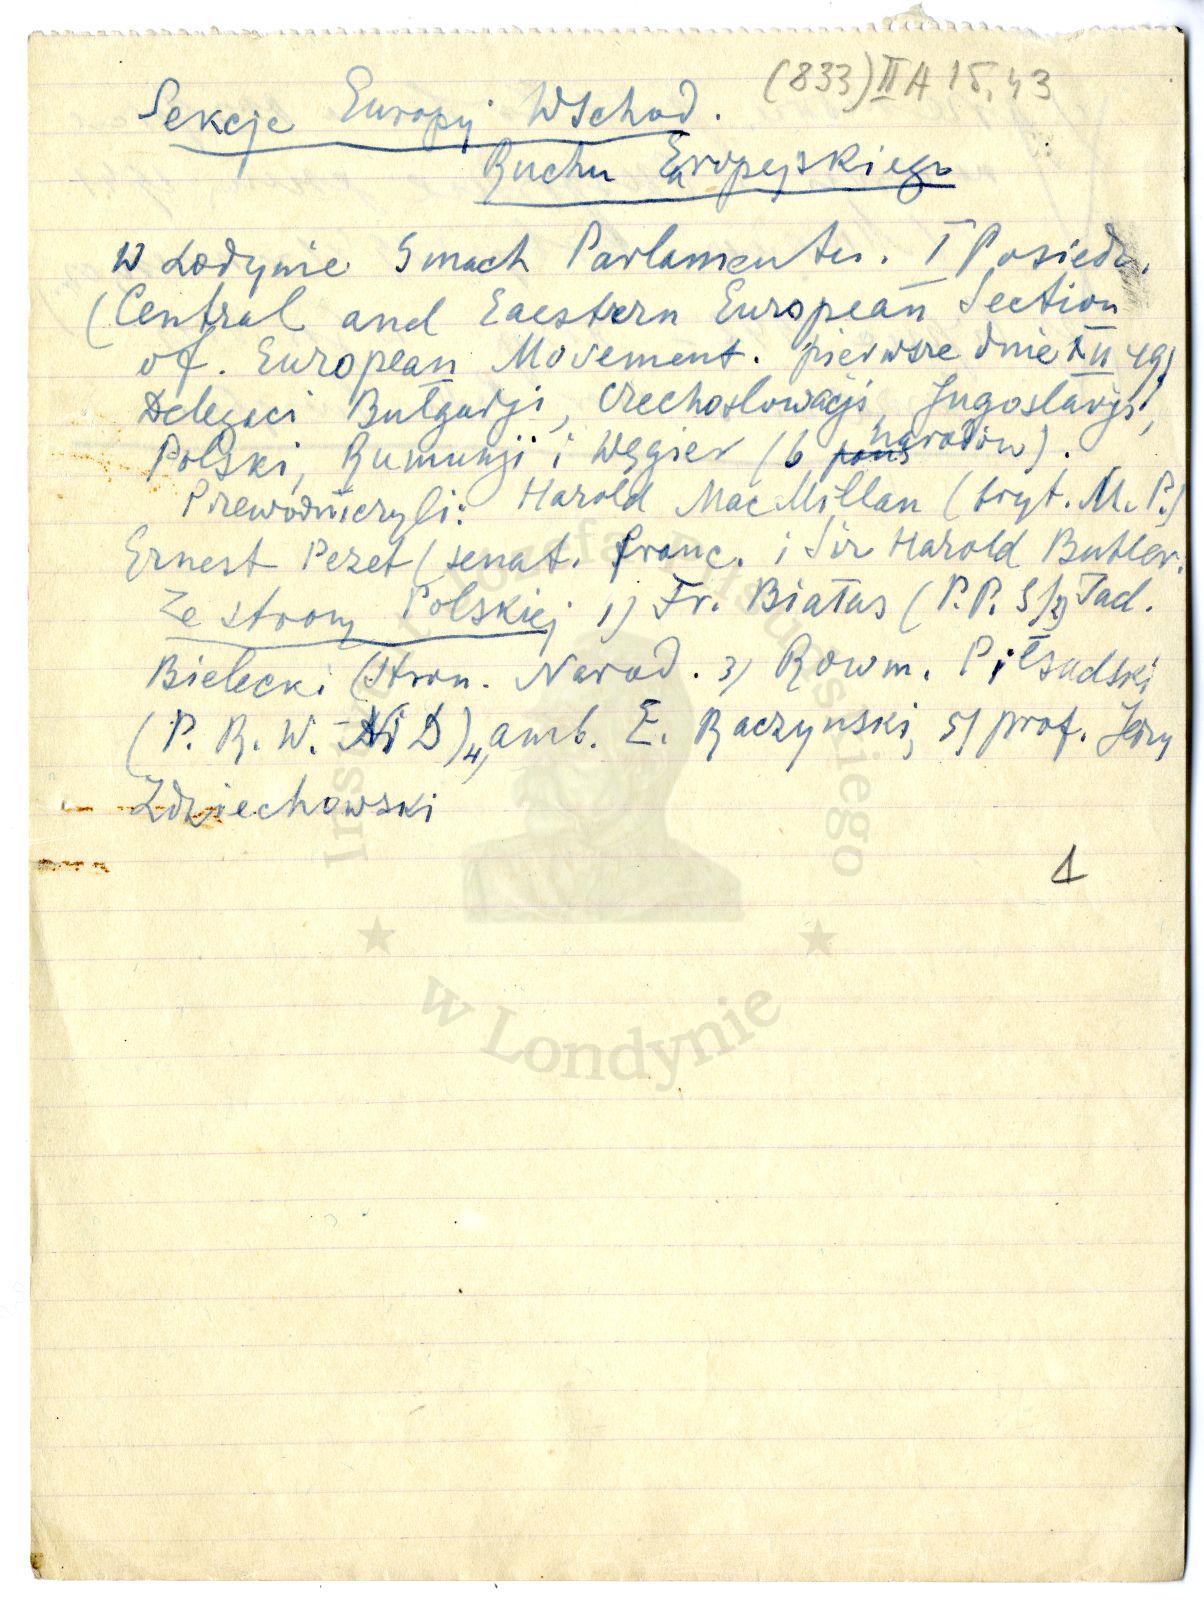 (833) II A 15,43
Sekcje Europy Wschod.
Ruchu Europejskiego
W Lodynie Gmach Parlamentu. I Posiedz.
(Central and Eaestern European Section
of. European Movement. pierwsze dnie XII 49)
Delegaci Bułgarji, Czechosłowacji, Jugosławji,
Polski, Rumunji i Węgier (6 narodów).
Przewodniczyli: Harold MacMillan (bryt. M.P.)
Ernest Pezet (senat. franc. i Sir Harold Butler.
Ze strony Polskiej 1) Fr. Białas (P.P.S/2) Tad.
Bielecki (Stron. Narod. 3) Rowm. Piłsudski
(P. R. W. NiD) 4, amb. E. Raczynski, 5) prof. Jerzy
Zdziechowski
1
Instytut Józefa Piłsudskiego
w Londynie